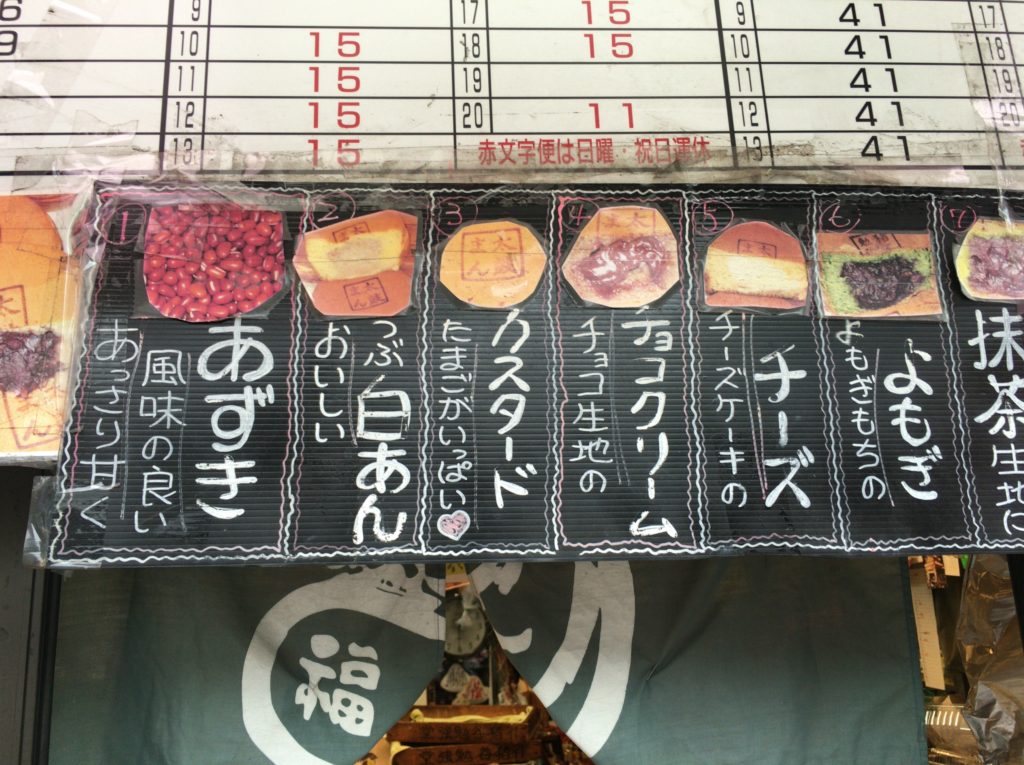 9
10 15
11 15
12 15
13 15
17 15
18 15
19
20 11
赤文字便は日曜・祝日運休
9 41
10 41
11 41
12 41
13 41
17
18
19
20
①
あずき
風味の良い
あっさり甘く
②
つぶ白あん
おいしい
③
カスタード
たまごがいっぱい
④
チョコクリーム
チョコ生地の
⑤
チーズ
チーズケーキの
⑥
よもぎ
よもぎもちの
⑦
抹茶生地に
福